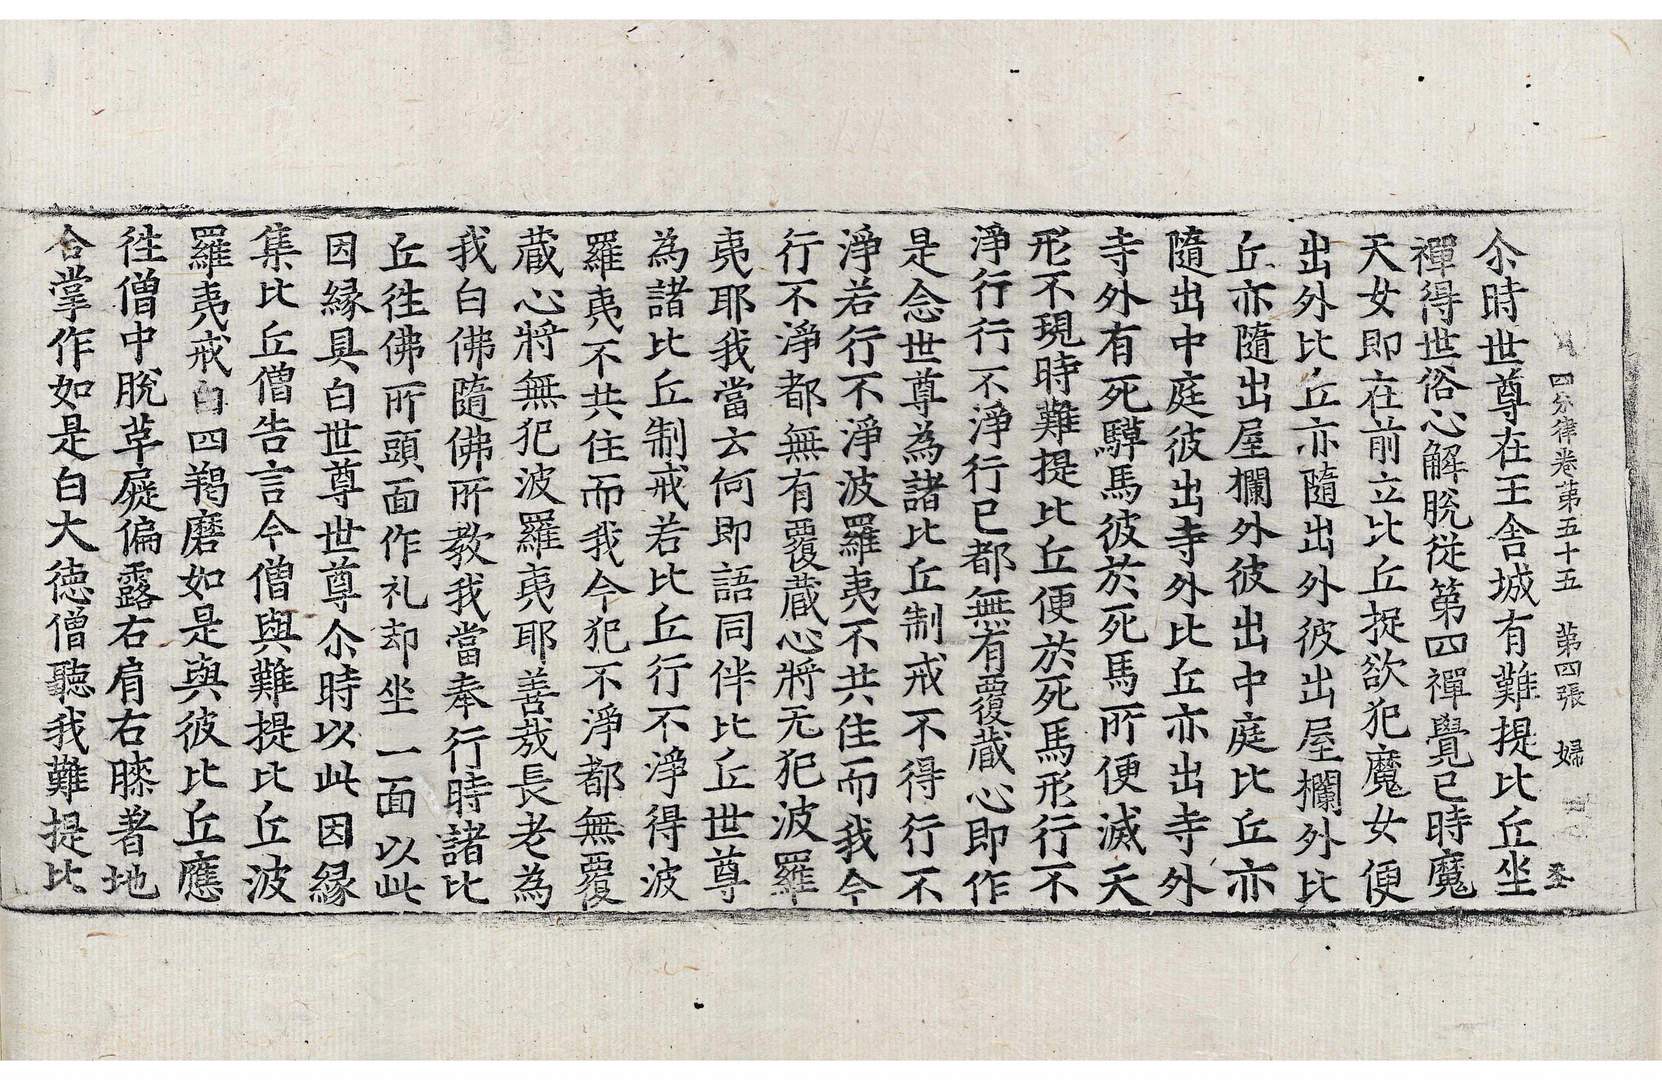 四分律卷第五十五 第四張 婦
尒時世尊在王舍城有難提比丘坐
禪得世俗心解脫從第四禪覺已時魔
天女即在前立比丘捉欲犯魔女便
出外比丘亦隨出外彼出屋欄外比
丘亦隨出屋欄外彼出中庭比丘亦
隨出中庭彼出寺外比丘亦出寺外
寺外有死騲馬彼於死馬所便滅天
形不現時難提比丘便於死馬形行不
淨行行不淨行已都無有覆藏心即作
是念世尊為諸比丘制戒不得行不
淨若行不淨波羅夷不共住而我今
行不淨都無有覆藏心將无犯波羅
夷耶我當云何即語同伴比丘世尊
為諸比丘制戒若比丘行不淨得波
羅夷不共住而我今犯不淨都無覆
藏心將無犯波羅夷耶善哉長老為
我白佛隨佛所教我當奉行時諸比
丘往佛所頭面作礼却坐一面以此
因緣具白世尊世尊尒時以此因緣
集比丘僧告言今僧與難提比丘波
羅夷戒白四羯磨如是與彼比丘應
徃僧中脫革屣偏露右肩右膝著地
合掌作如是白大德僧聽我難提比